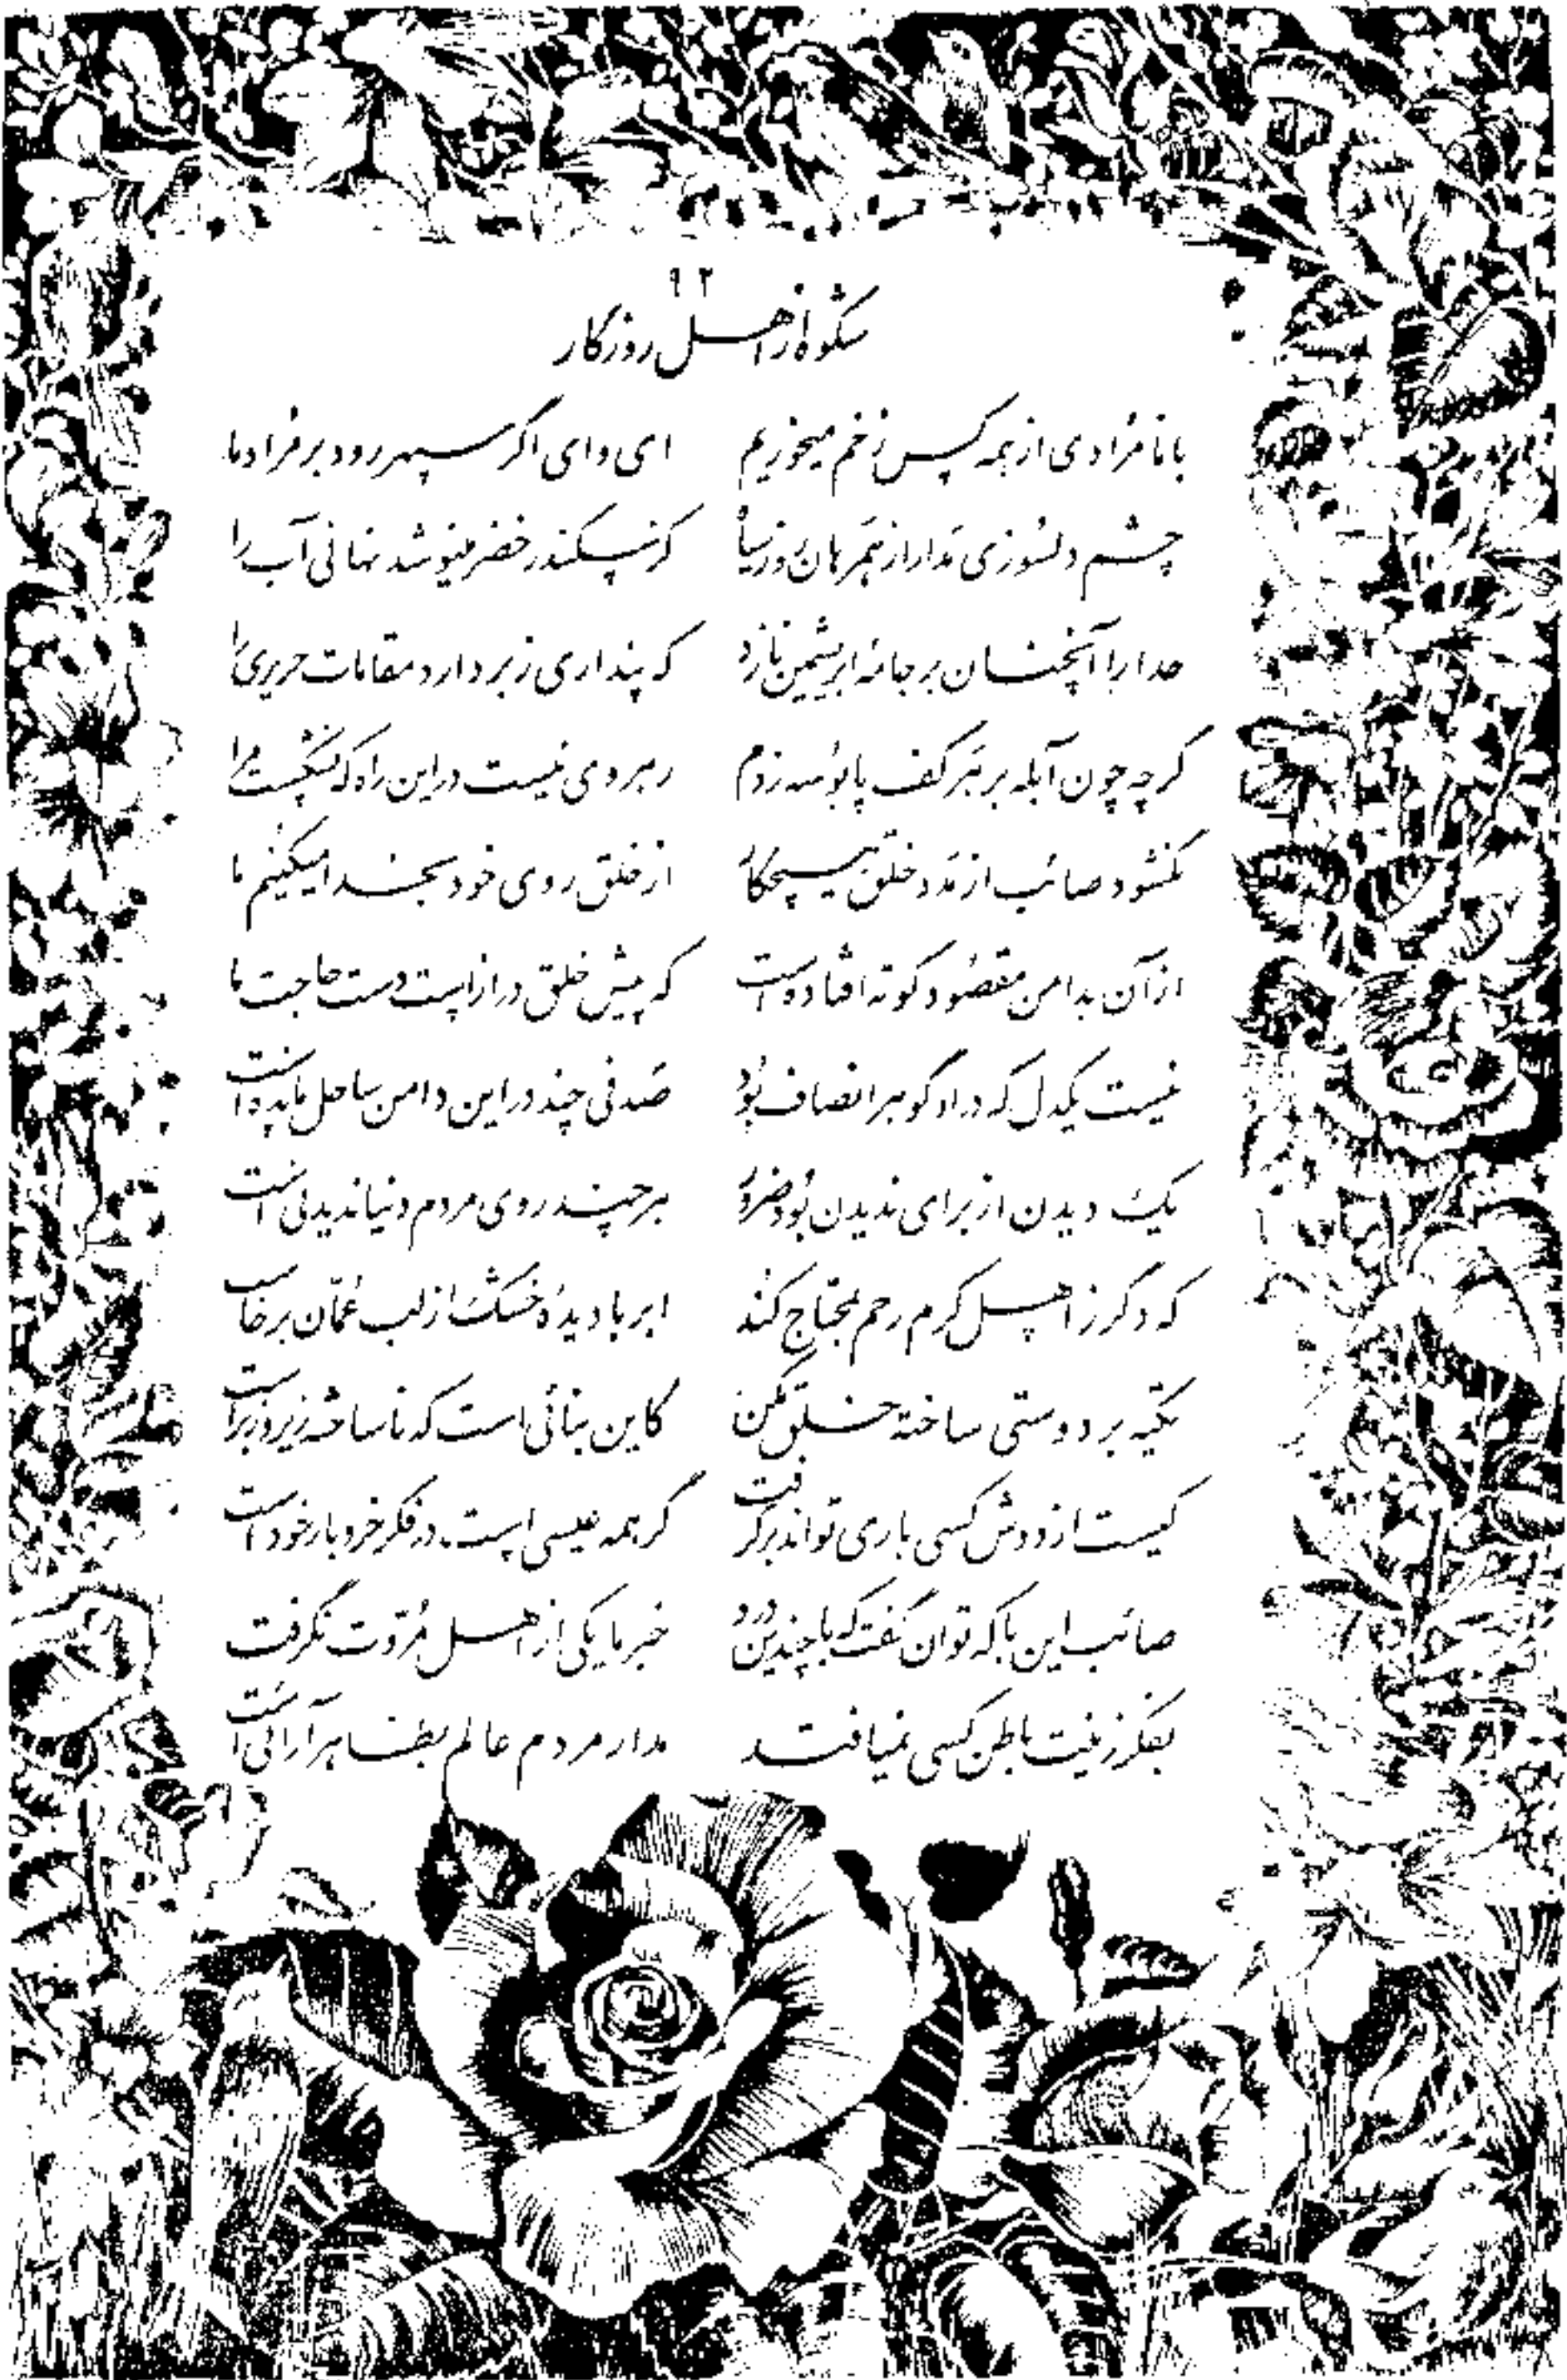 ۹۲
شکوه از اهل روزگار
با نامرادی از همه کس زخم میخوریم ای وای اگر سپهر رود بر مراد ما
چشم دلسوزی مدار از همرهان روز سیاه کز سکندر خضر مینوشد نهانی آب را
خدا را آنچنان بر جامهٔ ابریشمین نازد که پنداری ز بر دارد مقامات حریری را
گرچه چون آبله بر هر کف پا بوسه زدم رهروی نیست در این راه که نشکست مرا
نگشود صائب از مدد خلق هیچکار از خلق روی خود بخدا میکنیم ما
از آن بدامن مقصود کوته افتاده است که پیش خلق درازست دست حاجت ما
نیست یکدل که در او گوهر انصاف بود صدفی چند در این دامن ساحل مانده است
یک دیدن از برای ندیدن بود ضرور هر چند روی مردم دنیا ندیدنی است
که دگر ز اهل کرم رحم بمحتاج کند ابر با دیدهٔ خشک از لب عمّان برخاست
تکیه بر دوستی ساختهٔ خلق مکن کاین بنائی است که ناساخته زیر و زبر است
کیست از دوش کسی باری تواند برگرفت گر همه عیسی است در فکر خر و بار خود است
صائب این با که توان گفت که با چندین درد خبر ما یکی از اهل مروّت نگرفت
بفکر زینت باطن کسی نمیافتد مدار مردم عالم بظاهر آرائی است